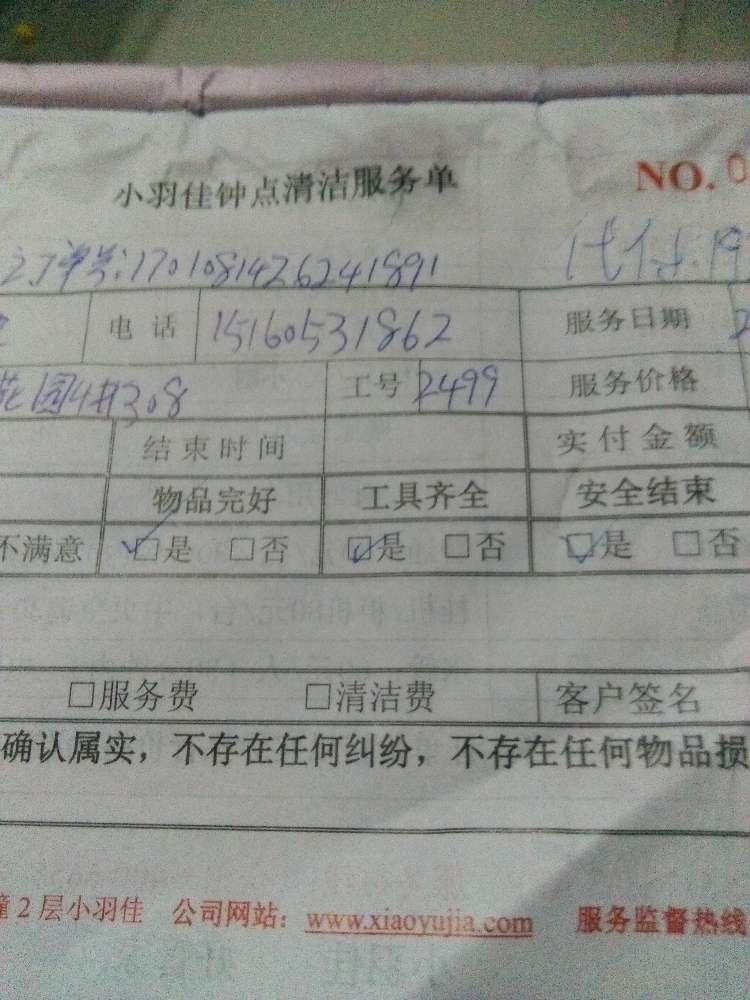 小羽佳钟点清洁服务单 NO.0
订单号:1701081426241891 代付.19
电话 15160531862 服务日期 2
花园4#308 工号 2499 服务价格
结束时间 实付金额
物品完好 工具齐全 安全结束
不满意 ☑是 □否 ☑是 □否 ☑是 □否
□服务费 □清洁费 客户签名
确认属实，不存在任何纠纷，不存在任何物品损
2层小羽佳 公司网站：www.xiaoyujia.com 服务监督热线